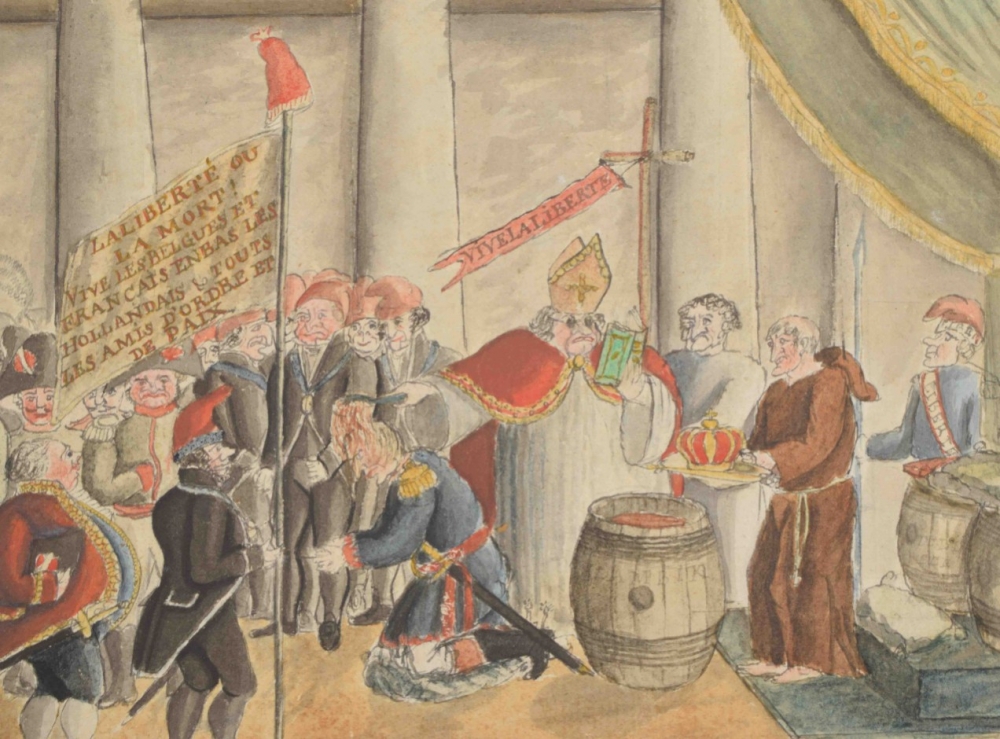 LA LIBERTÉ OU
LA MORT!
VIVE LES BELGUES ET
FRANCAIS EN BAS LES
HOLLANDAIS TOUTS
LES AMIS D'ORDRE ET
DE PAIX
VIVE LA LIBERTE